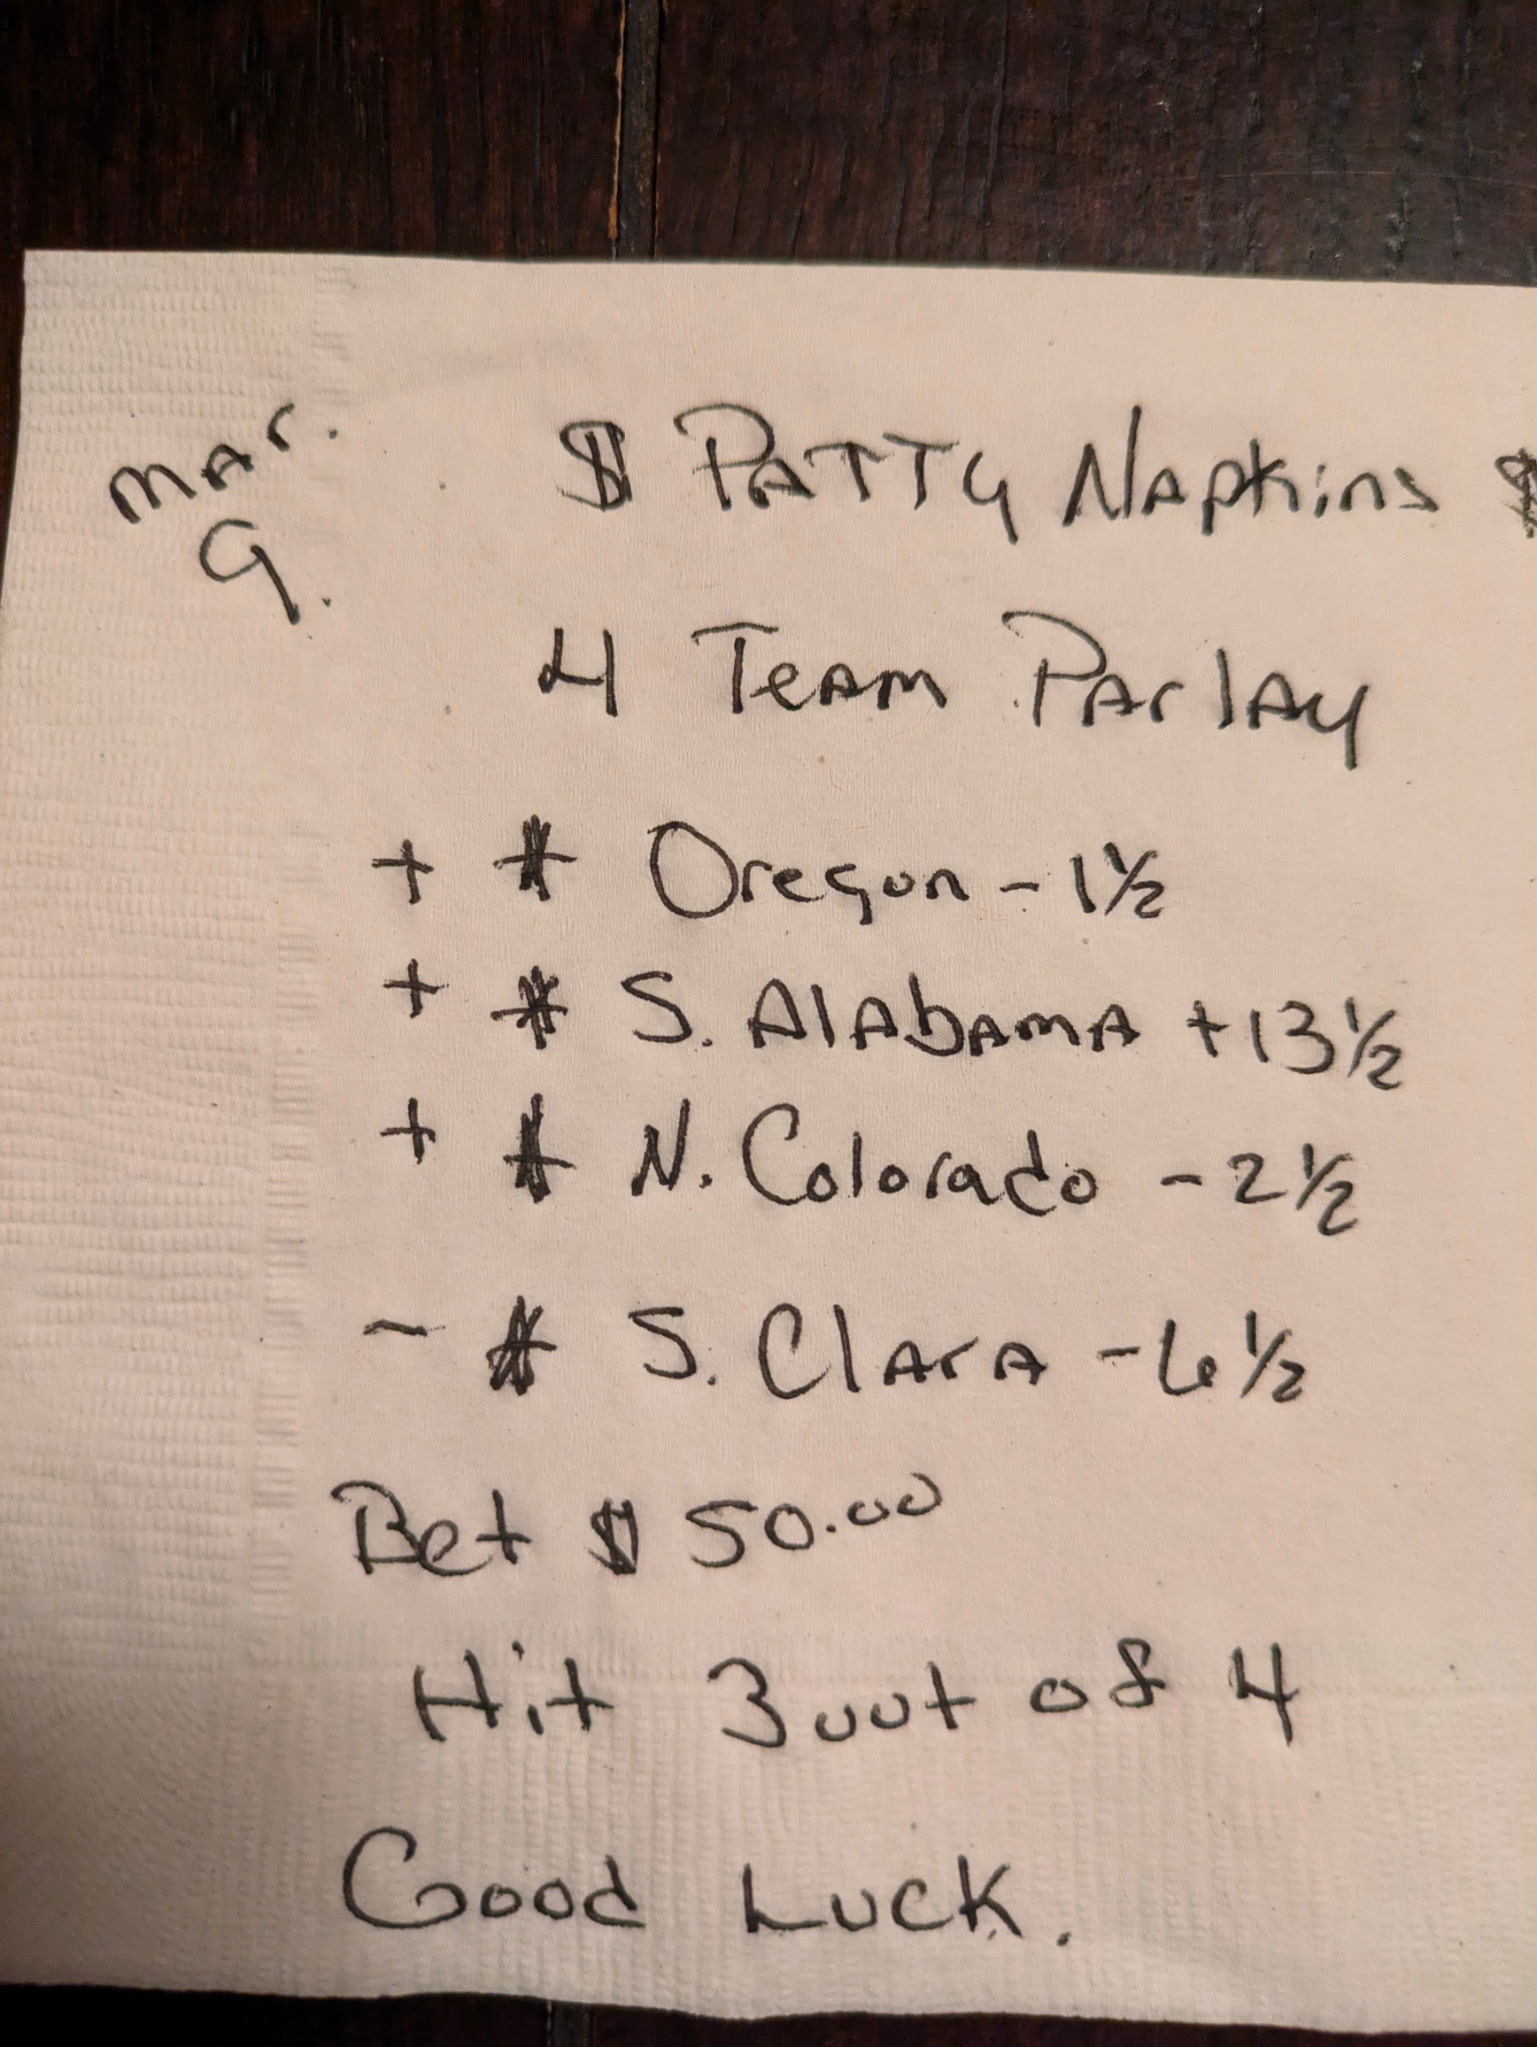 Mar.
9.
$ Patty Napkins $
4 Team Parlay
+ * Oregon - 1½
+ * S. Alabama +13½
+ * N. Colorado - 2½
- * S. Clara - 6½
Bet $ 50.00
Hit 3 out of 4
Good Luck.